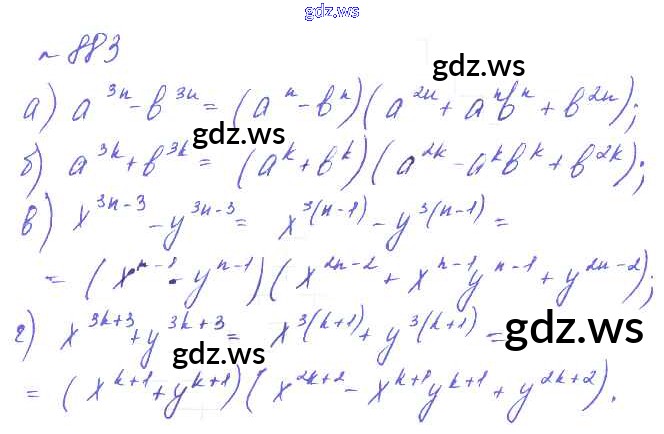 gdz.ws
№ 883
gdz.ws
а) a^{3n} - b^{3n} = (a^n - b^n)(a^{2n} + a^n b^n + b^{2n});
gdz.ws
б) a^{3k} + b^{3k} = (a^k + b^k)(a^{2k} - a^k b^k + b^{2k});
в) x^{3n-3} - y^{3n-3} = x^{3(n-1)} - y^{3(n-1)} =
= (x^{n-1} - y^{n-1})(x^{2n-2} + x^{n-1} y^{n-1} + y^{2n-2});
г) x^{3k+3} + y^{3k+3} = x^{3(k+1)} + y^{3(k+1)} =
gdz.ws
gdz.ws
= (x^{k+1} + y^{k+1})(x^{2k+2} - x^{k+1} y^{k+1} + y^{2k+2}).